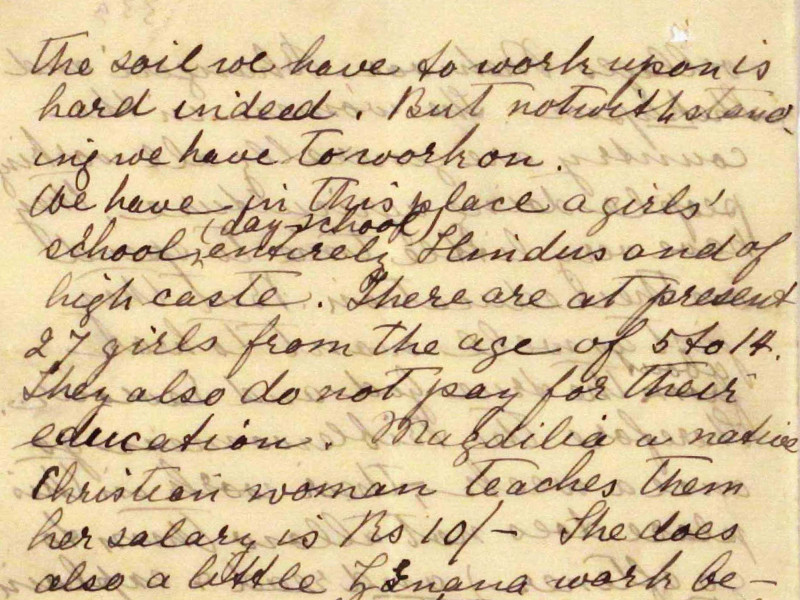 the soil we have to work upon is
hard indeed. But notwithstand-
ing we have to work on.
We have in this place a girls'
(day school)
school, entirely Hindus and of
high caste. There are at present
27 girls from the age of 5 to 14.
They also do not pay for their
education. Magdilia a native
Christian woman teaches them
her salary is Rs 10/- She does
also a little Zenana work be-